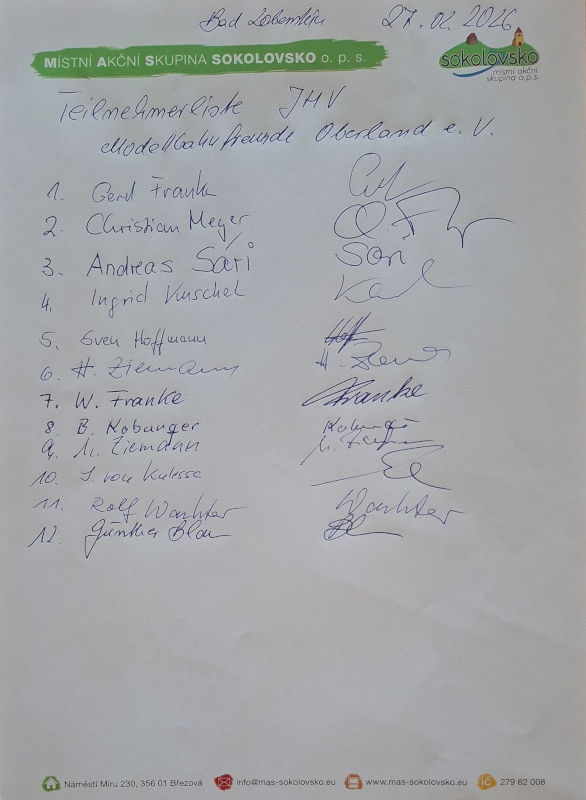 Bad Lobenstein 27.02.2026
MÍSTNÍ AKČNÍ SKUPINA SOKOLOVSKO o. p. s.
sokolovsko
místní akční
skupina o.p.s.
Teilnehmerliste JHV
Modellbahnfreunde Oberland e. V.
1. Gerd Franke
2. Christian Meyer
3. Andreas Sári Sári
4. Ingrid
5. Sven Hoffmann
6. H. Ziemann
7. W. Franke Franke
8. B. Kobanger
9. M. Ziemann
10. J. von Kulessa
11. Rolf Wachter Wachter
12. Günther Blau
Náměstí Míru 230, 356 01 Březová info@mas-sokolovsko.eu www.mas-sokolovsko.eu IČ 279 62 008